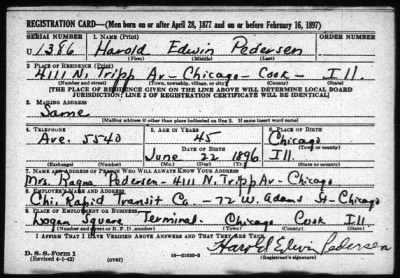 REGISTRATION CARD—(Men born on or after April 28, 1877 and on or before February 16, 1897)
SERIAL NUMBER 1. NAME (Print) ORDER NUMBER
U 1386 Harold Edwin Pedersen
(First) (Middle) (Last)
2. PLACE OF RESIDENCE (Print)
4111 N. Tripp Av - Chicago - Cook - Ill.
(Number and street) (Town, township, village, or city) (County) (State)
[THE PLACE OF RESIDENCE GIVEN ON THE LINE ABOVE WILL DETERMINE LOCAL BOARD
JURISDICTION; LINE 2 OF REGISTRATION CERTIFICATE WILL BE IDENTICAL]
3. MAILING ADDRESS
Same
[Mailing address if other than place indicated on line 2. If same insert word same]
4. TELEPHONE 5. AGE IN YEARS 6. PLACE OF BIRTH
Ave. 5540 45 Chicago
DATE OF BIRTH (Town or county)
June 22 1896 Ill.
(Exchange) (Number) (Mo.) (Day) (Yr.) (State or country)
7. NAME AND ADDRESS OF PERSON WHO WILL ALWAYS KNOW YOUR ADDRESS
Mrs. Dagna Pedersen - 4111 N. Tripp Av - Chicago
8. EMPLOYER'S NAME AND ADDRESS
Chi. Rapid Transit Co. - 72 W. Adams St - Chicago
9. PLACE OF EMPLOYMENT OR BUSINESS
Logan Square Terminal. Chicago Cook Ill.
(Number and street or R. F. D. number) (Town) (County) (State)
I AFFIRM THAT I HAVE VERIFIED ABOVE ANSWERS AND THAT THEY ARE TRUE.
D. S. S. Form 1
(Revised 4-1-42) (over) 16—21630-2
Harold Edwin Pedersen
(Registrant's signature)